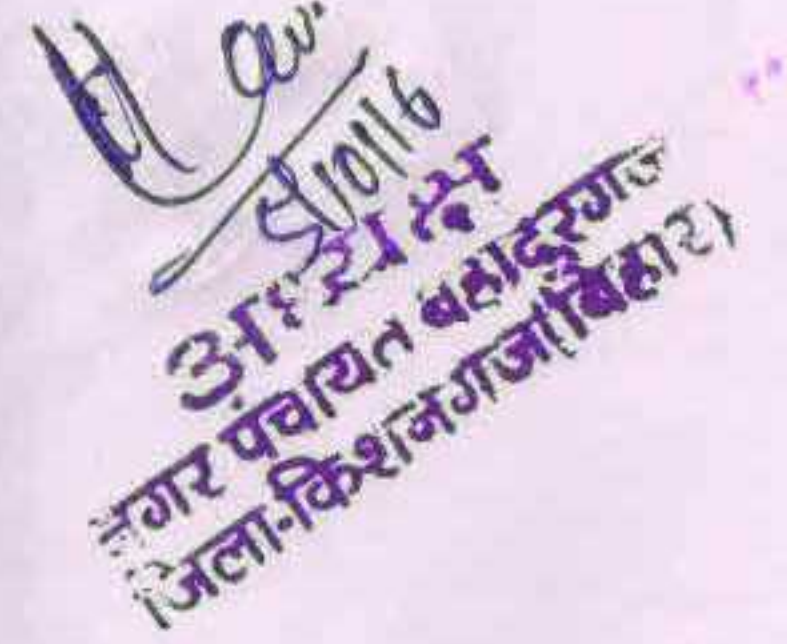 5/01/16
अध्यक्ष
नगर पंचायत बहादुरगंज
जिला-किशनगंज(बिहार)